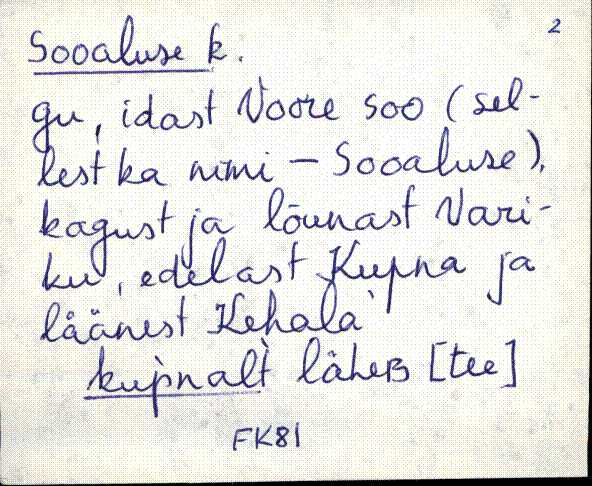 2
Sooaluse k.
gu, idast Voore soo (sel-
lest ka nimi – Sooaluse),
kagust ja lõunast Vari-
ku, edelast Kupna ja
läänest Kehala
kupnalt läheb [tee]
EK81